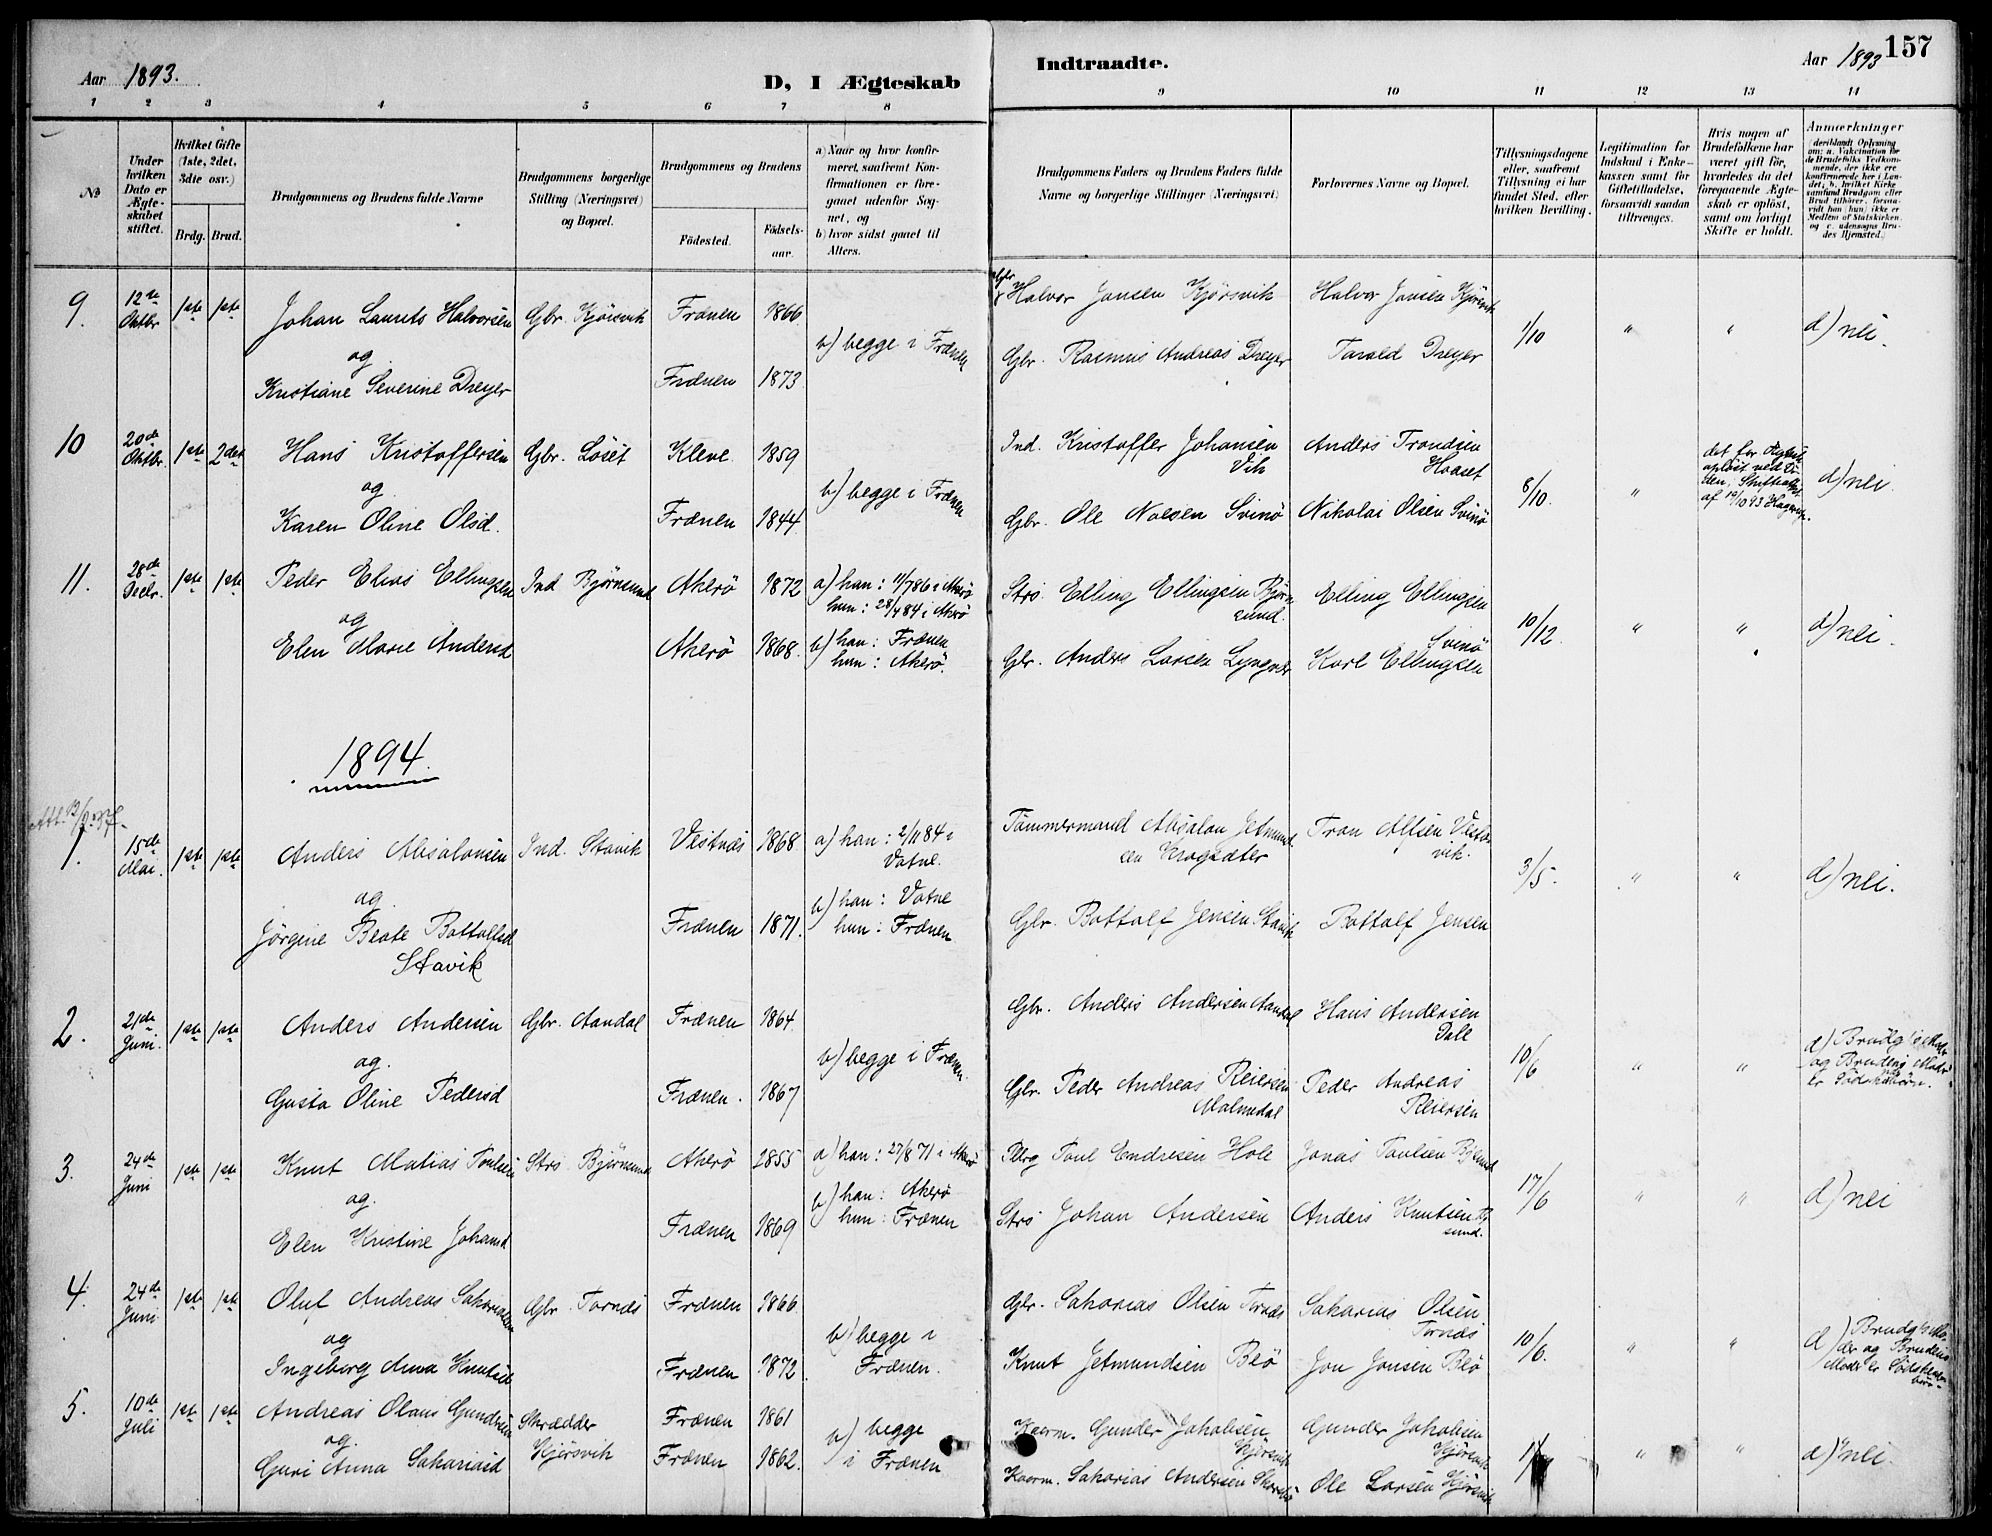 Aar 1893.
D, I Ægteskab
Indtraadte.
Aar 1893
157
1 2 3 4 5 6 7 8 9 10 11 12 13 14
No
Under hvilken Dato er Ægteskabet stiftet.
Hvilket Gifte (1ste, 2det, 3die osv.)
Brdg. Brud.
Brudgommens og Brudens fulde Navne
Brudgommens borgerlige Stilling (Næringsvei) og Bopæl.
Brudgommens og Brudens
Fødested.
Fødselsaar.
a) Naar og hvor konfirmeret, saafremt Konfirmationen er foregaaet udenfor Sognet, og
b) hvor sidst gaaet til Alters.
Brudgommens Faders og Brudens Faders fulde Navne og borgerlige Stillinger (Næringsvei)
Forlovernes Navne og Bopæl.
Tillysningsdagene eller, saafremt Tillysning ei har fundet Sted, efter hvilken Bevilling.
Legitimation for Indskud i Enkekassen samt for Giftetilladelse, forsaavidt saadan tiltrænges.
Hvis nogen af Brudefolkene har været gift før, hvorledes da det foregaaende Ægteskab er opløst, samt om lovligt Skifte er holdt.
Anmærkninger
(deriblandt Oplysning om: a. Vakcination for de Brudefolks Vedkommende, der ikke ere konfirmerede her i Landet; b. hvilket Kirkesamfund Brudgom eller Brud tilhører, forsaavidt han (hun) ikke er Medlem af Statskirken, og c. udensogns Brudes Hjemsted.)
9. 12te Oktbr 1ste 1ste Johan Laurits Halvorsen Gbr. Kjörsvik Frænen 1866
og
Kristiane Severine Dreyer Frænen 1873
b) begge i Frænen
Gbr Halvor Jansen Kjörsvik Halvor Jansen Kjörsvik
Gbr. Rasmus Andreas Dreyer Tarald Dreyer
1/10 " " d) nei.
10 20de Oktbr. 1ste 2det Hans Kristoffersen Gbr. Löset Kleve 1859
og
Karen Oline Olsd. Frænen 1844
b) begge i Frænen
Ind. Kristoffer Johansen Vik Anders Trondsen Haaset
Gbr. Ole Nolsen Svinö Nikolai Olsen Svinö
8/10. "
det før. Ægtesk. opløst ved Döden; Skifteattest af 19/10 93
d) nei.
11. 28de Decbr. 1ste 1ste Peder Elias Ellingsen Ind Björnsund Akerö 1872
og
Elen Marie Andersd Akerö 1868.
a) han: 11/7 86 i Akerö
hun: 28/9 84 i Akerö
b) han: Frænen
hun: Akerö.
Strs. Elling Ellingsen Björnsund. Elling Ellingsen
Gbr. Anders Larsen Lyngvær Karl Ellingsen Svinö
10/12. " " d) nei.
1894
1. 15de Mai. 1ste 1ste Anders Absalonsen Ind. Stavik Vestnæs 1868
og
Jörgine Beate Bottolfsd Stavik Frænen 1871.
a) han: 2/11 84 i Vatne.
b) han: Vatne
hun: Frænen
Tömmermand Absalon Jetmundsen Kragsæter Tron Alfsen Vestavik.
Gbr. Bottolf Jensen Stavik Bottolf Jensen
3/5. " " d) nei.
2. 21de Juni. 1ste 1ste Anders Andersen Gbr. Aandal Frænen 1864.
og.
Gusta Oline Pedersd Frænen. 1867
b) begge i Frænen.
Gbr. Anders Andersen Aandal Hans Andersen Dale
Gbr. Peder Andreas Reiersen Malmedal Peder Andreas Reiersen
10/6 " "
d) Brudg's Moder og Brudens Moder er Södskenbörn.
3. 24de Juni 1ste 1ste Knut Matias Paulsen Strs Björnsund Akerö 1855
og.
Elen Kristine Johansd Frænen 1869
a) han: 27/8 71 i Akerö
b) han: Akerö
hun: Frænen
Paul Endresen Hole Jonas Paulsen Bjsund
Strs Johan Andersen Anders Knutsen Bjsund.
17/6 " " d) nei
4. 24de Juni 1ste 1ste Oluf Andreas Sakariassen Gbr. Tornes Frænen 1866
og
Ingeborg Anna Knutsd Frænen 1872.
b) begge i Frænen.
Gbr. Sakarias Olsen Tornes Sakarias Olsen Tornes
Knut Jetmundsen Blö Jon Jonsen Blö
10/6. " "
d) Brudg's Moder og Brudens Moder er Södskenbörn
5. 10de Juli 1ste 1ste Andreas Olaus Gundersen Skrædder Hjörsvik Frænen 1861
og.
Guri Anna Sakariasd Frænen 1862.
b) begge i Frænen
Kaarm. Gunder Jakobsen Hjörsvik Gunder Jakobsen Hjörsvik
Kaarm. Sakarias Andersen Ole Larsen Hjörsvik
" " d) nei.